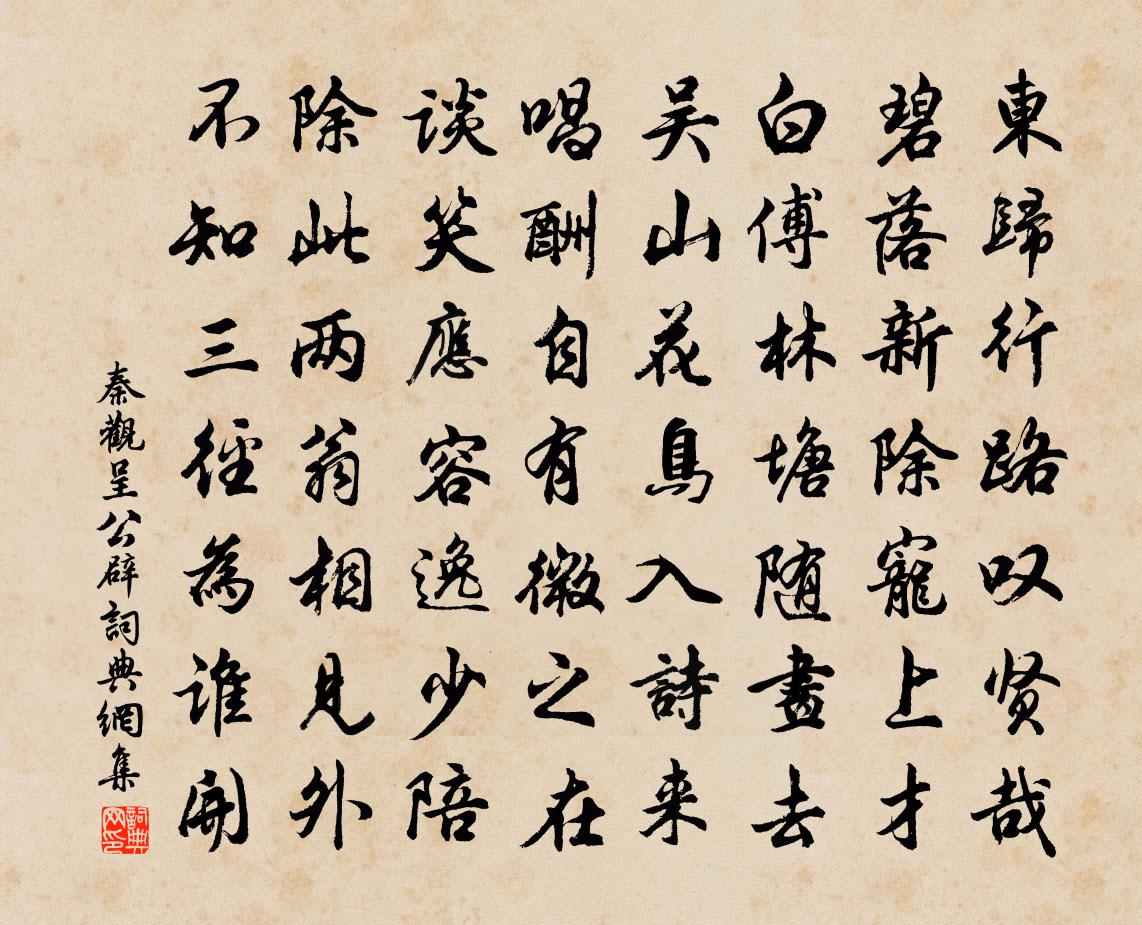 東歸行路叹贤哉
碧落新除寵上才
白傅林塘随畫去
吴山花鳥入詩来
唱酬自有微之在
談笑應容逸少陪
除此两翁相見外
不知三徑為誰開
秦觀呈公辟詞典網集
詞典网印